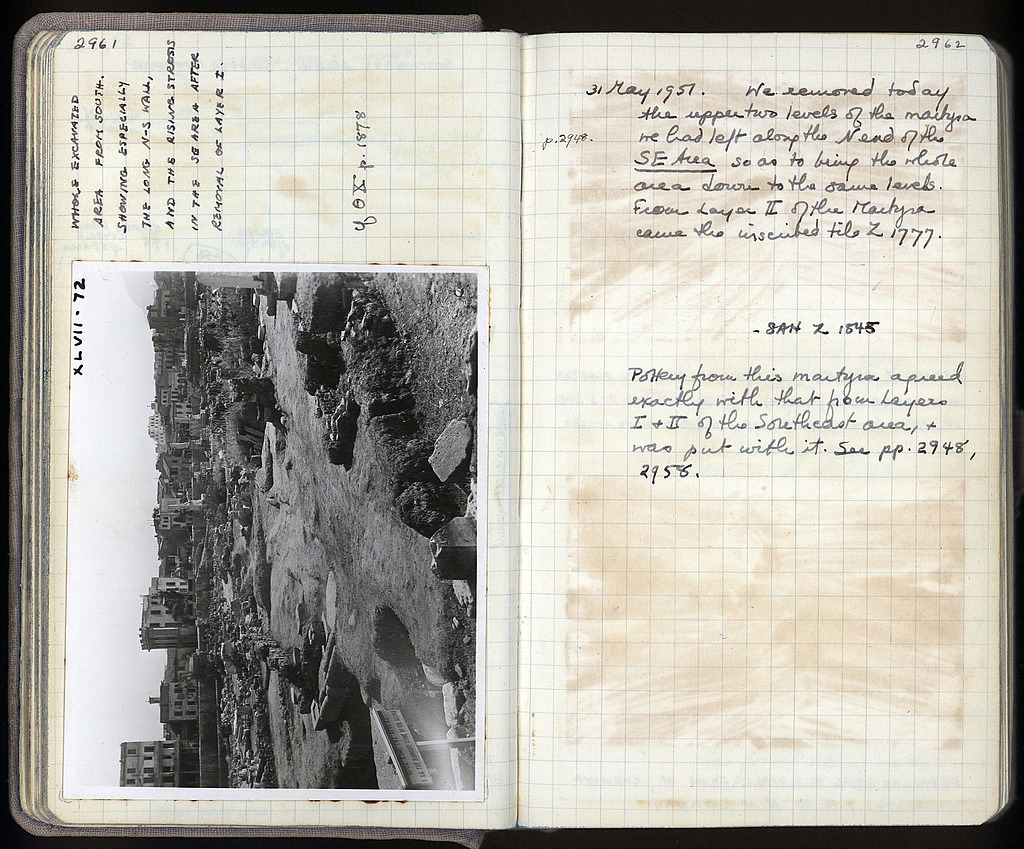 2961
WHOLE EXCAVATED
AREA FROM SOUTH.
SHOWING ESPECIALLY
THE LONG N-S WALL,
AND THE RISING STEREOSIS
IN THE SE AREA AFTER
REMOVAL OF LAYER I.
p. 1878
XLVII-72
2962
31 May 1951. We removed today
the upper two levels of the martyra
p. 2948. we had left along the N end of the
SE Area so as to bring the whole
area down to the same levels.
From Layer II of the Martyra
came the inscribed tile Z 1777.
- SAH Z 1845
Pottery from this martyra agreed
exactly with that from Layers
I + II of the Southeast area, +
was put with it. See pp. 2948,
2956.